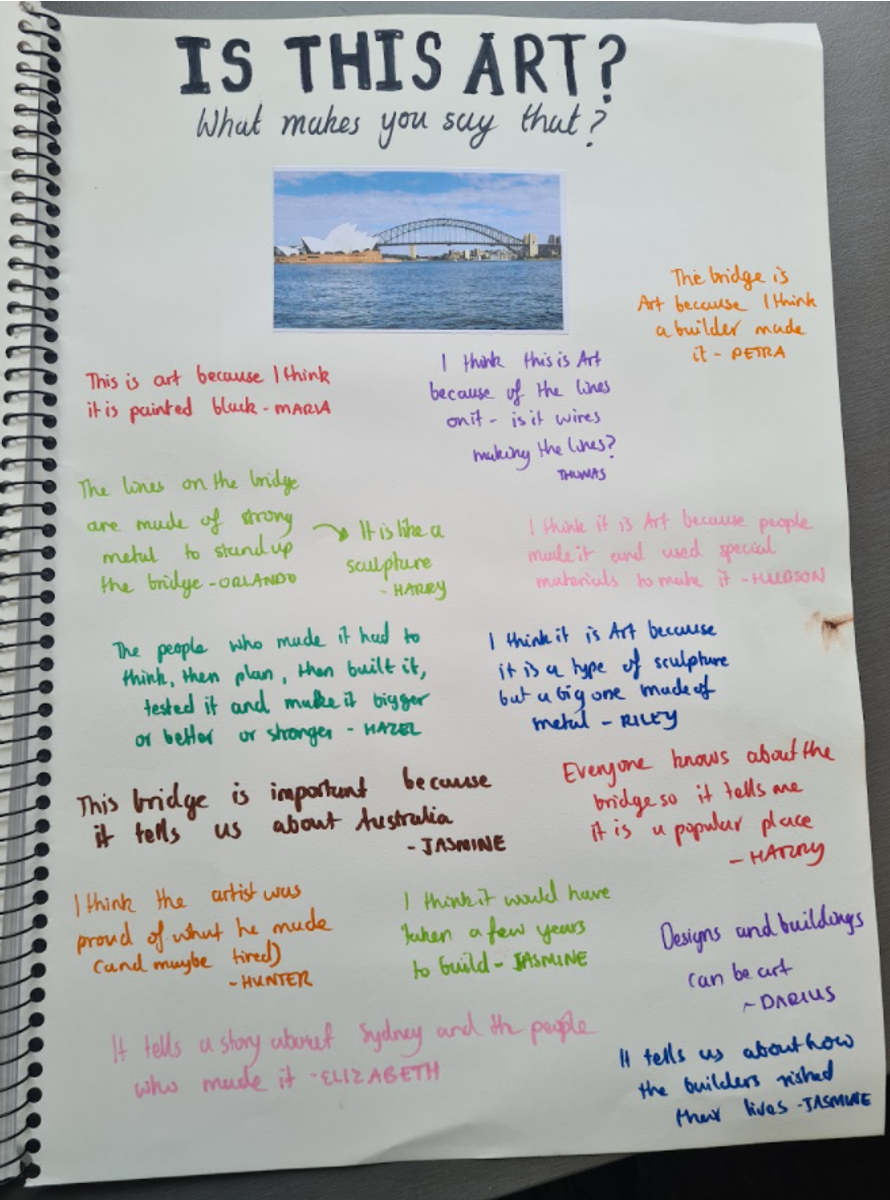 IS THIS ART?
What makes you say that?
The bridge is
Art because I think
a builder made
it - PETRA
This is art because I think
it is painted black - MARIA
I think this is Art
because of the lines
on it - is it wires
making the lines?
THOMAS
The lines on the bridge
are made of strong
metal to stand up
the bridge - ORLANDO
It is like a
sculpture
- HARRY
I think it is Art because people
made it and used special
materials to make it - HUDSON
The people who made it had to
think, then plan, then built it,
tested it and make it bigger
or better or stronger - HAZEL
I think it is Art because
it is a type of sculpture
but a big one made of
metal - RILEY
This bridge is important because
it tells us about Australia
- JASMINE
Everyone knows about the
bridge so it tells me
it is a popular place
- HARRY
I think the artist was
proud of what he made
(and maybe tired)
- HUNTER
I think it would have
taken a few years
to build - JASMINE
Designs and buildings
can be art
- DARIUS
It tells a story about Sydney and the people
who made it - ELIZABETH
It tells us about how
the builders risked
their lives - JASMINE